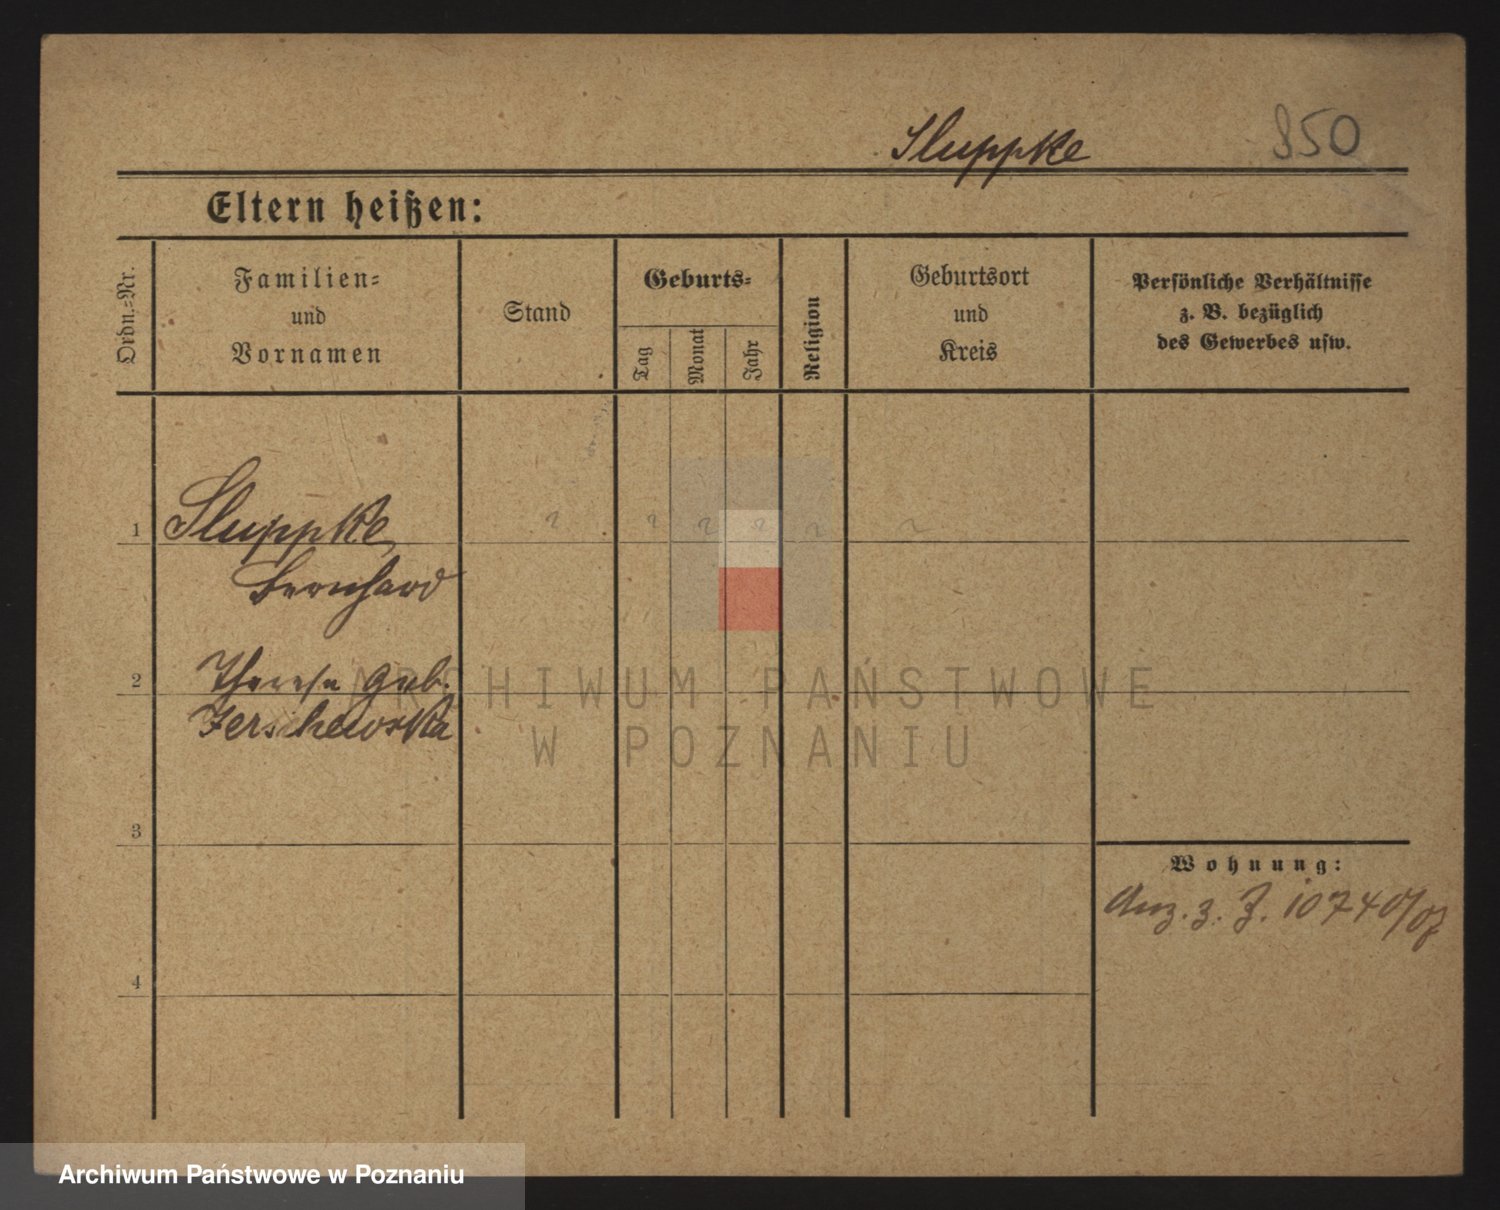 Sluppke 850
Eltern heißen:
Ordn.=Nr.
Familien=
und
Vornamen
Stand
Geburts=
Tag
Monat
Jahr
Religion
Geburtsort
und
Kreis
Persönliche Verhältnisse
z. B. bezüglich
des Gewerbes usw.
1 Sluppke ? ? ? ? ? ?
Bernhard
2 Therese geb.
Jerschewska
ARCHIWUM PAŃSTWOWE
W POZNANIU
3
Wohnung:
Anz. z. J. 10740/07
4
Archiwum Państwowe w Poznaniu